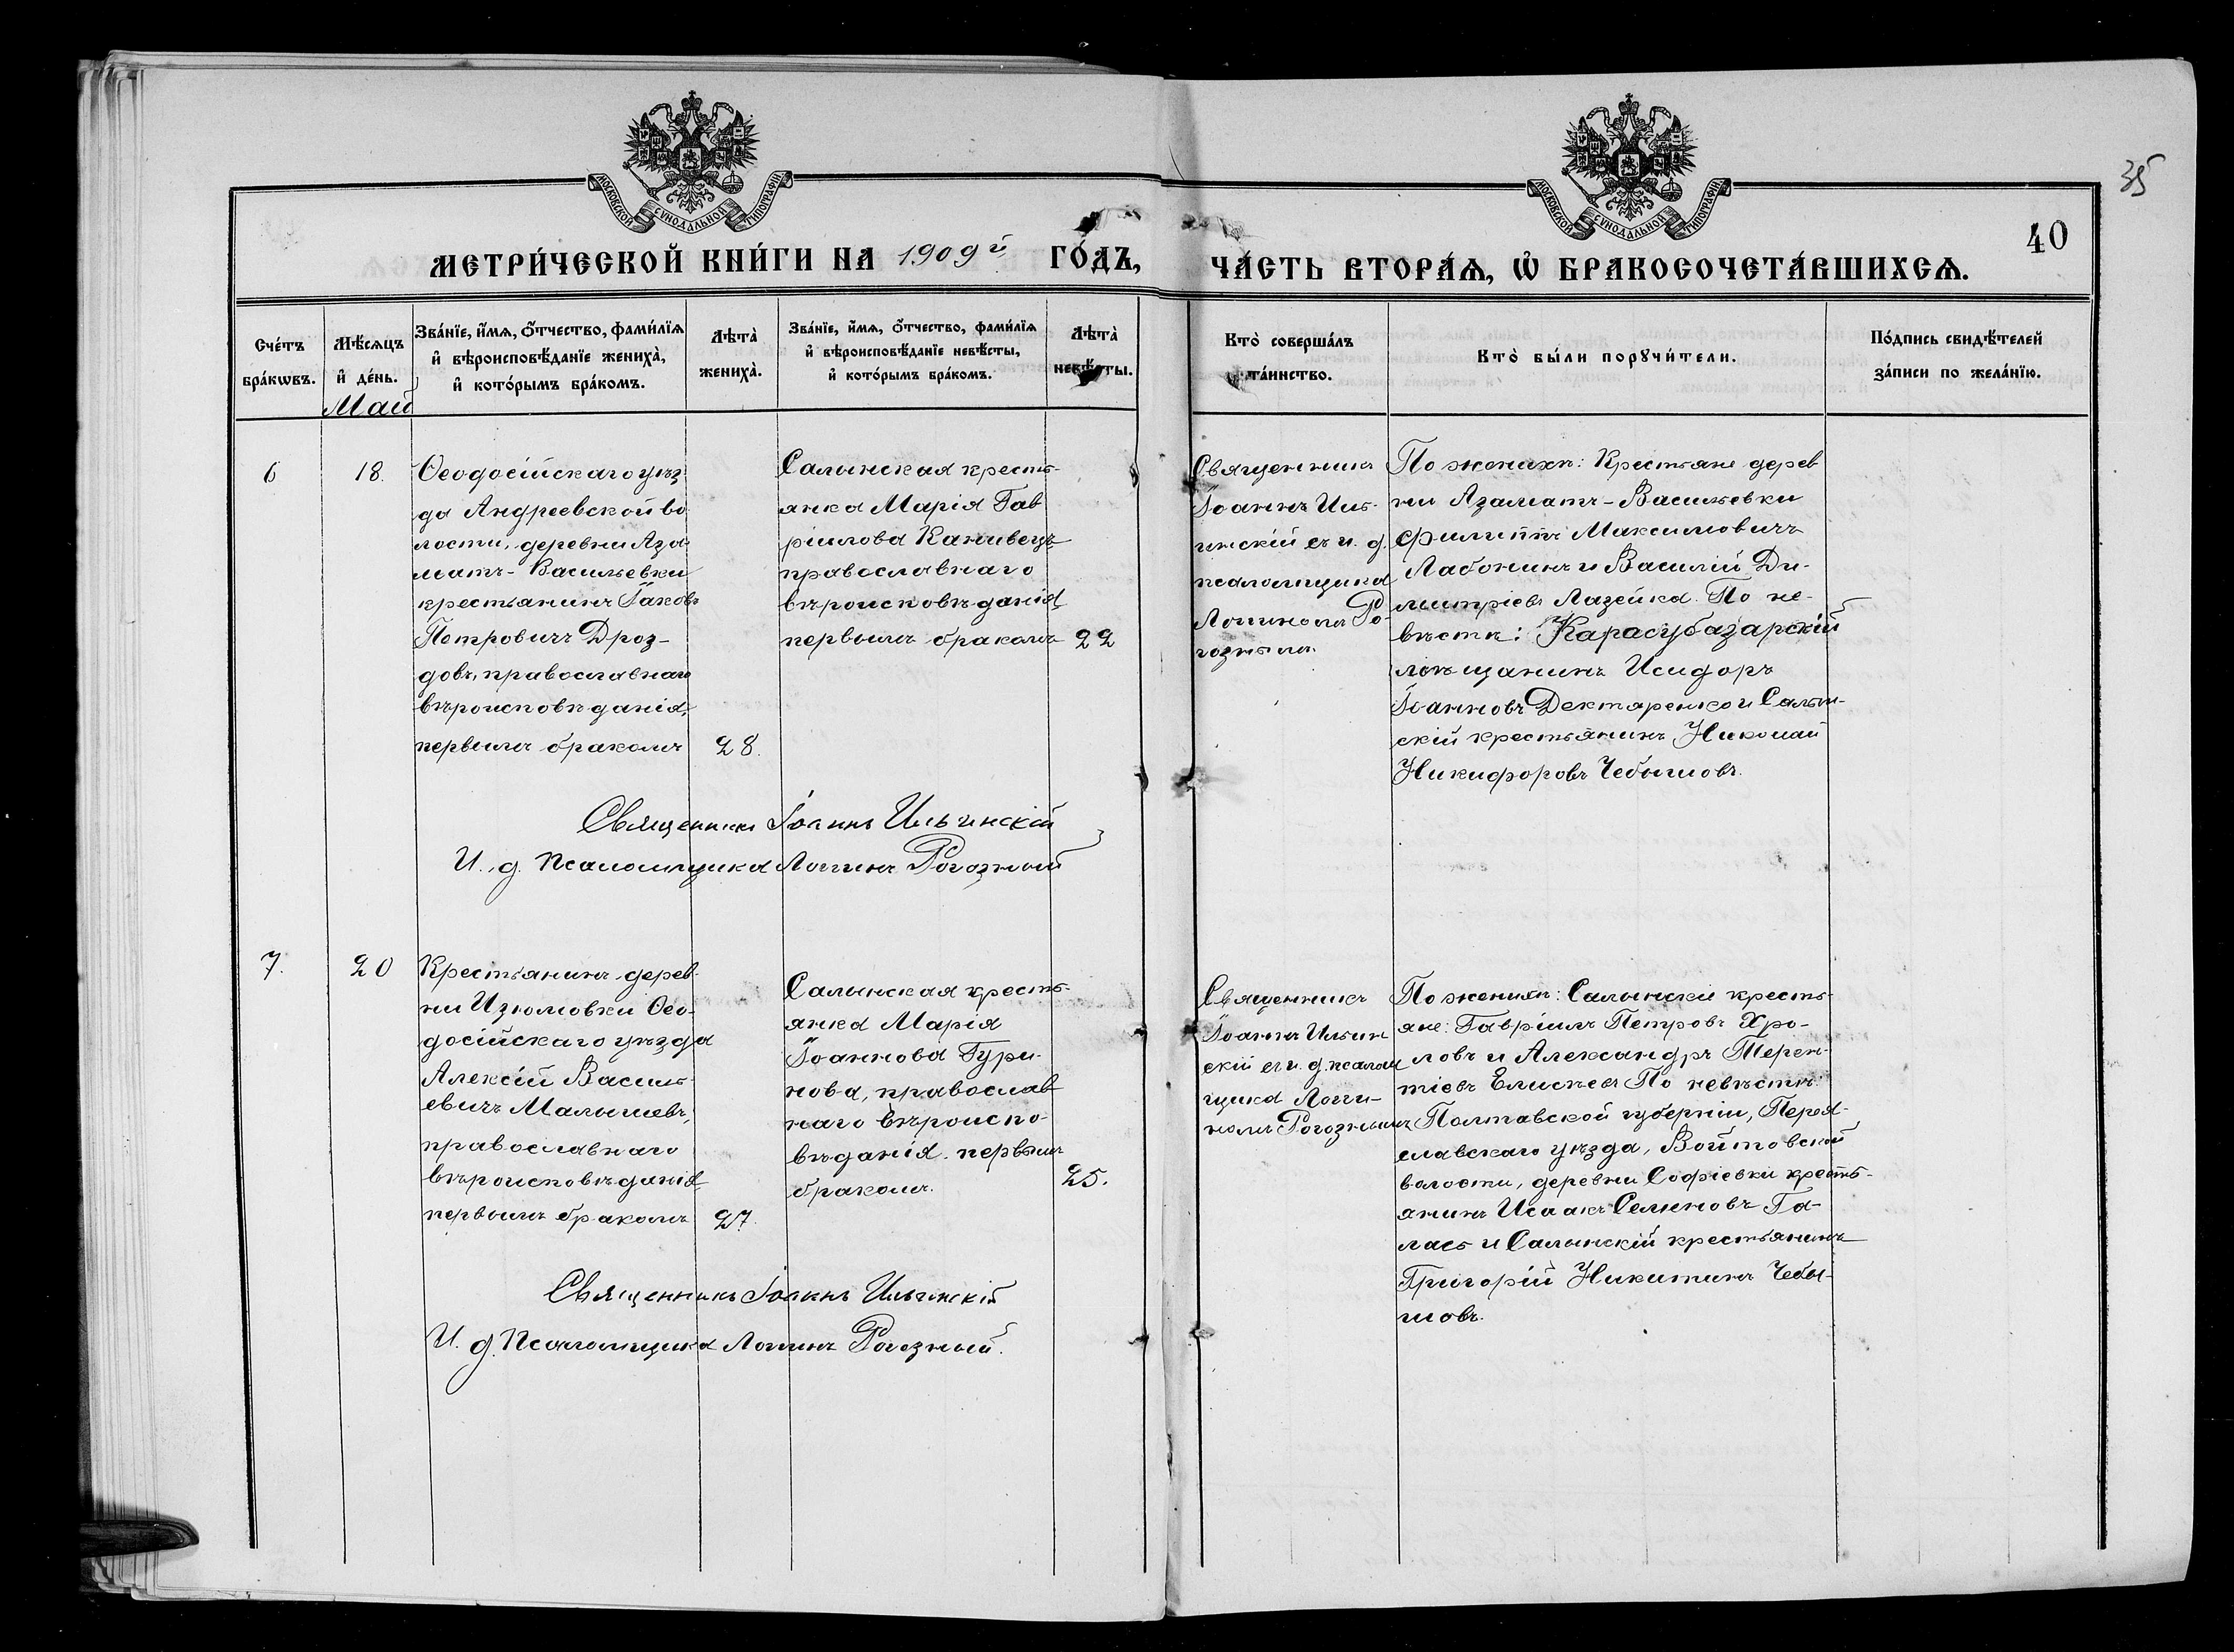 МОСКОВСКОЙ СѴНОДАЛЬНОЙ ТИПОГРАФІИ
МОСКОВСКОЙ СѴНОДАЛЬНОЙ ТИПОГРАФІИ
35
40
МЕТРИ́ЧЕСКОЙ КНИ́ГИ НА 1909й ГО́ДЪ,
ЧА́СТЬ ВТОРА́Ѧ, Ѡ҆ БРАКОСОЧЕТА́ВШИХСѦ.
Сче́тъ
бра́кѡвъ.
Мѣ́сѧцъ
и҆ де́нь.
Зва́нїе, и҆́мѧ, ѻ҆́тчество, фами́лїѧ
и҆ вѣроисповѣ́данїе женихà,
и҆ кото́рымъ бра́комъ.
Лѣтà
женихà.
Зва́нїе, и҆́мѧ, ѻ҆́тчество, фами́лїѧ
и҆ вѣроисповѣ́данїе невѣ́сты,
и҆ кото́рымъ бра́комъ.
Лѣтà
невѣ́сты.
Ктò соверша́лъ
та́инство.
Ктò бы́ли порꙋчи́тели.
По́дпись свидѣ́телей
за́писи по жела́нїю.
Май
6
18.
Ѳеодосійскаго уѣз
да Андреевской во
лости, деревни Аза
матъ-Васильевки
крестьянинъ Іаковъ
Петровичъ Дроз-
довъ, православнаго
вѣроисповѣданія,
первымъ бракомъ
28.
Салынская кресть-
янка Марія Гав
ріилова Канивецъ
православнаго
вѣроисповѣданія
первымъ бракомъ
22
Священникъ
Іоаннъ Иль-
инскій съ и. д.
псаломщика
Логиномъ Ро-
гознымъ.
По женихѣ: Крестьяне дерев
ни Азаматъ-Васильевки
Филиппъ Максимовичъ
Лабонинъ и Василій Ди-
митріевъ Лазейка. По не-
вѣстѣ: Карасубазарскій
мѣщанинъ Исидоръ
Іоанновъ Дектяренко и Салын-
скій крестьянинъ Николай
Никифоровъ Чебышовъ.
Священникъ Іоаннъ Ильинскій
И. д. Псаломщика Логинъ Рогозный
7.
20
Крестьянинъ дерев-
ни Изюмовки Ѳео-
досійскаго уѣзда
Алексій Василь-
евичъ Малышевъ,
православнаго
вѣроисповѣданія
первымъ бракомъ
27.
Салынская кресть-
янка Марія
Іоаннова Гури-
нова, православ
наго вѣроиспо-
вѣданія. первымъ
бракомъ.
25.
Священникъ
Іоаннъ Ильин
скій съ и. д. псалом
щика Логи-
номъ Рогознымъ
По женихѣ: Салынскіе кресть-
яне: Гавріилъ Петровъ Хро-
ловъ и Александръ Терен-
тіевъ Елисѣевъ По невѣстѣ:
Полтавской губерніи, Перея-
славскаго уѣзда, Войтовской
волости, деревни Софіевки кресть-
янинъ Исаакъ Семеновъ Га-
лась и Салынскій крестьянинъ
Григорій Никитинъ Чебы-
шовъ.
Священникъ Іоаннъ Ильинскій
И. д. Псаломщика Логинъ Рогозный.